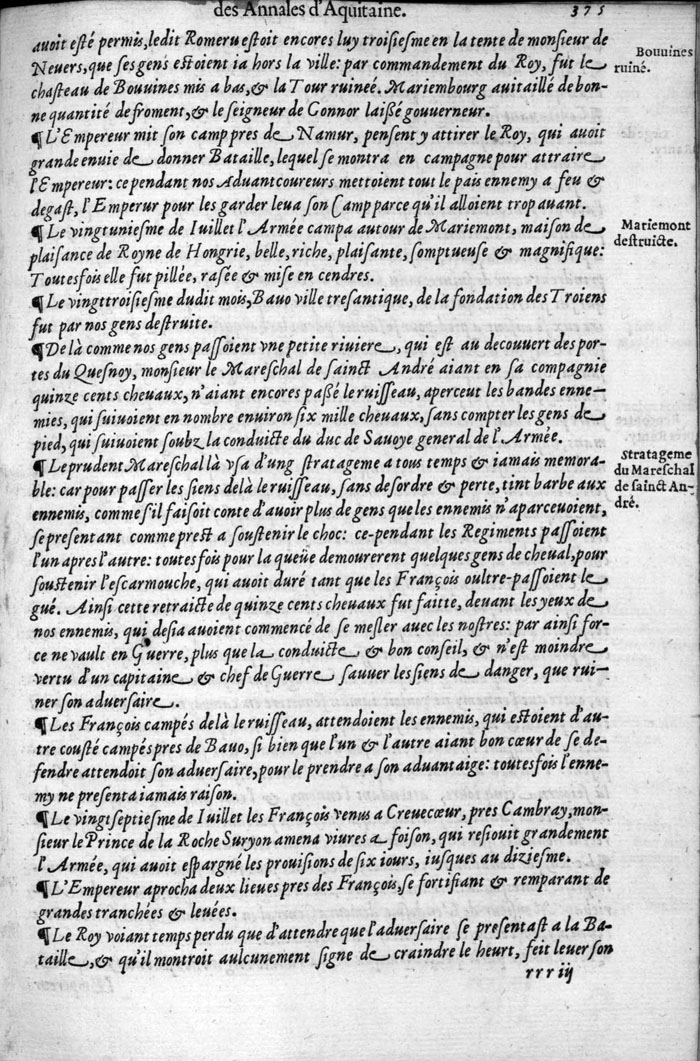 des Annales d'Aquitaine. 375
auoit esté permis, ledit Romeru estoit encores luy troisiesme en la tente de monsieur de
Neuers, que ses gens estoient ia hors la ville: par commandement du Roy, fut le
chasteau de Bouuines mis a bas, & la Tour ruineé. Mariembourg auitaillé de bon-
ne quantité de froment, & le seigneur de Connor laißé gouuerneur.
Bouuines
ruiné.
¶ L'Empereur mit son camp pres de Namur, pensent y attirer le Roy, qui auoit
grande enuie de donner Bataille, lequel se montra en campagne pour attraire
l'Empereur: ce pendant nos Aduantcoureurs mettoient tout le pais ennemy a feu &
degast, l'Emperur pour les garder leua son Camp parce qu'il alloient trop auant.
¶ Le vingtuniesme de Iuillet l'Armée campa autour de Mariemont, maison de
plaisance de Royne de Hongrie, belle, riche, plaisante, somptueuse & magnifique:
Toutesfois elle fut pillée, rasée & mise en cendres.
Mariemont
destruicte.
¶ Le vingttroisiesme dudit mois, Bauo ville tresantique, de la fondation des Troiens
fut par nos gens destruite.
¶ De là comme nos gens passoient vne petite riuiere, qui est au decouuert des por-
tes du Quesnoy, monsieur le Mareschal de sainct André aiant en sa compagnie
quinze cents cheuaux, n'aiant encores paßé le ruisseau, aperceut les bandes enne-
mies, qui suiuoient en nombre enuiron six mille cheuaux, sans compter les gens de
pied, qui suiuoient soubz la conduicte du duc de Sauoye general de l'Armée.
¶ Le prudent Mareschal là vsa d'ung strategeme a tous temps & iamais memora-
ble: car pour passer les siens delà le ruisseau, sans desordre & perte, tint barbe aux
ennemis, comme s'il faisoit conte d'auoir plus de gens que les ennemis n'aparceuoient,
se presentant comme prest a soustenir le choc: ce-pendant les Regiments passoient
l'un apres l'autre: toutesfois pour la queüe demourerent quelques gens de cheual, pour
soustenir l'escarmouche, qui auoit duré tant que les François oultre-passoient le
gué. Ainsi cette retraicte de quinze cents cheuaux fut faitte, deuant les yeux de
nos ennemis, qui desia auoient commencé de se mesler auec les nostres: par ainsi for-
ce ne vault en Guerre, plus que la conduicte & bon conseil, & n'est moindre
vertu d'un capitaine & chef de Guerre sauuer les siens de danger, que rui-
ner son aduersaire.
Stratageme
du Mareschal
de sainct An-
dré.
¶ Les François campés delà le ruisseau, attendoient les ennemis, qui estoient d'au-
tre cousté campés pres de Bauo, si bien que l'un & l'autre aiant bon cœur de se de-
fendre attendoit son aduersaire, pour le prendre a son aduantaige: toutesfois l'enne-
my ne presenta iamais raison.
¶ Le vingtseptiesme de Iuillet les François venus a Creuecœur, pres Cambray, mon-
sieur le Prince de la Roche Suryon amena viures a foison, qui resiouit grandement
l'Armée, qui auoit espargné les prouisions de six iours, iusques au diziesme.
¶ L'Empereur aprocha deux lieues pres des François, se fortifiant & remparant de
grandes tranchées & leuées.
¶ Le Roy voiant temps perdu que d'attendre que l'aduersaire se presentast a la Ba-
taille, & qu'il montroit aulcunement signe de craindre le heurt, feit leuer son
rrr iij